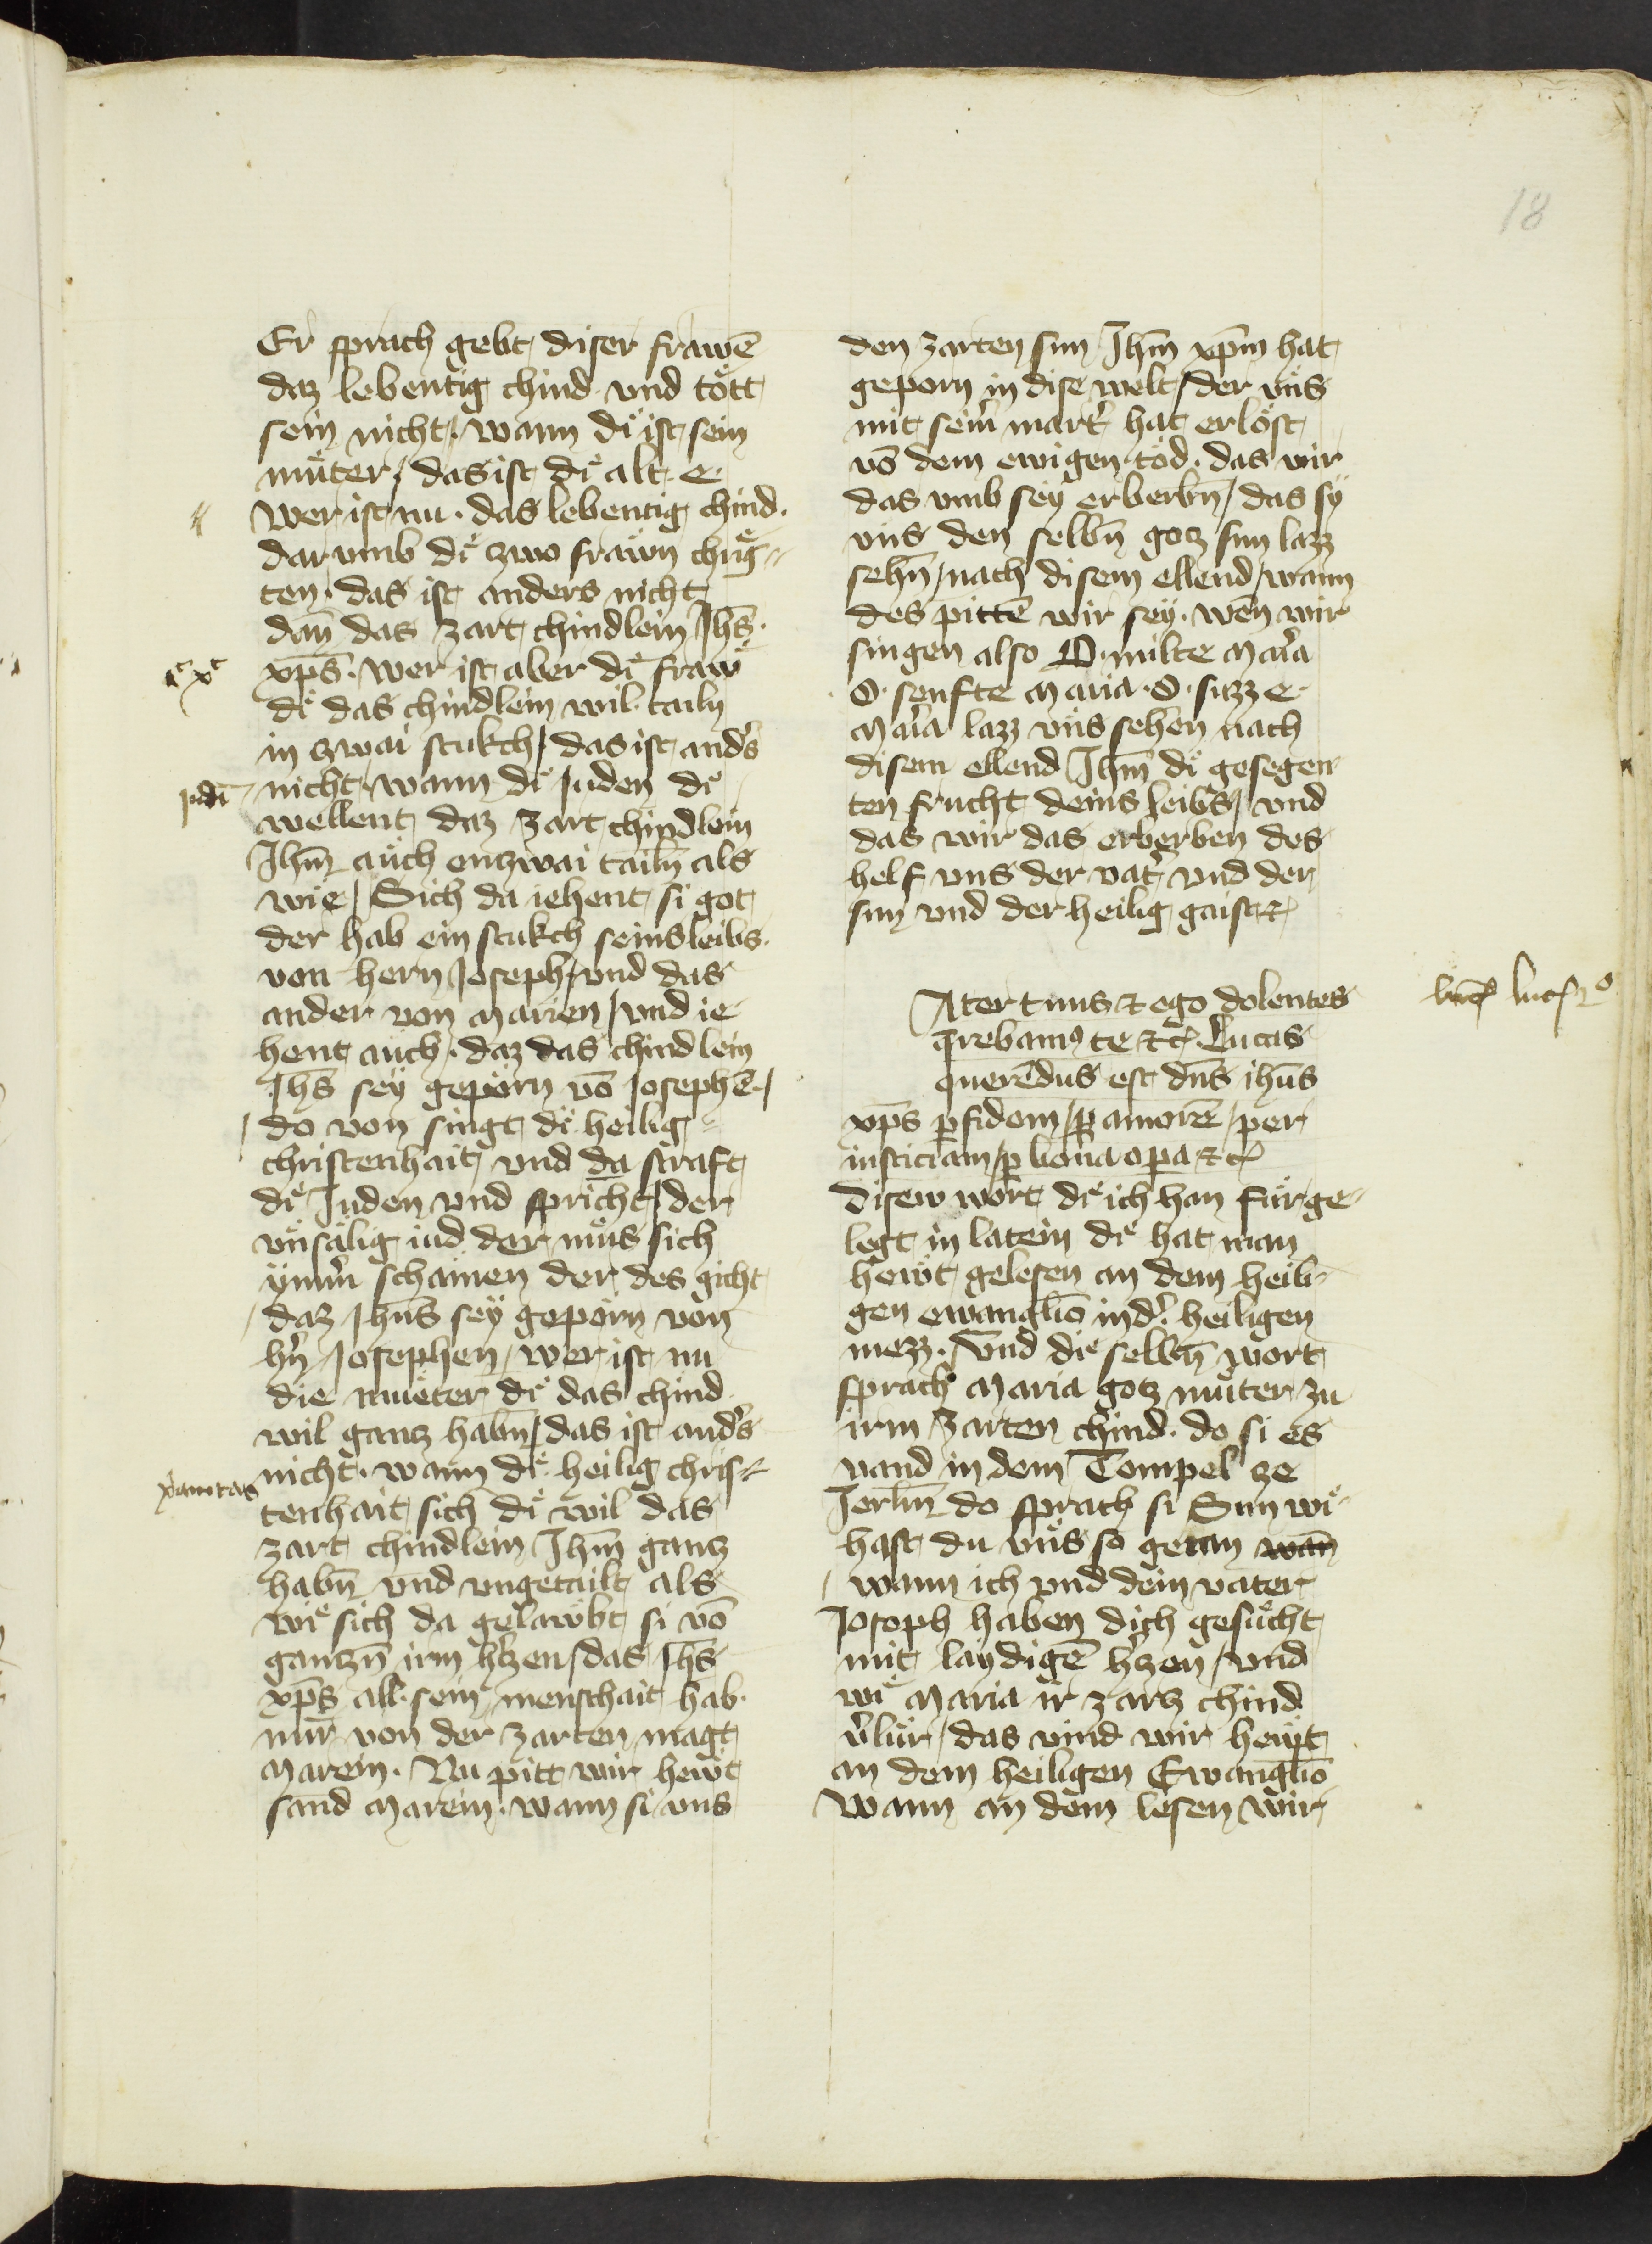 18
Er sprach gebt diser frawē
daz lebentig chind vnd tött
sein nicht / wann diͤ ist sein
muͤter / das ist diͤ alt e
wer ist nu · das lebentig chind ·
dar vmb diͤ zwo frawn chrieg-
ten · das ist anders nicht
dan̄ das zart chindlein Jhs̄ ·
xp̄s · wer ist aber diͤ fraw
diͤ das chindlein wil tailn
in zwai stukch / das ist and's
Judei
nicht / wann diͤ Juden diͤ
wellent daz zart chindlein
Jhm̄ auch enzwai tailn̄ als
wie / Sich da iehent si got
der hab ein stukch seins leibs ·
von hern Joseph / vnd das
ander von Marien / vnd ie
hent auch · daz das chindlein
Jhs̄ sey geporn vō Josephē /
do von singt diͤ heilig
christenhait vnd da straft
diͤ Juden vnd spricht / der
vnsälig iud der muͤs sich
ymm' schamen der des gicht
daz Jhūs sey geporn von
h'n Josephen / wer ist nu
die muͤter diͤ das chind
wil gantz habn̄ / das ist and's
x'anitas
nicht · wann diͤ heilig chris-
tenhait sich diͤ wil das
zart chindlein Jhm̄ gantz
habn̄ vnd vngetailt als
wiͤ sich da gelawbt si vō
gantzn̄ irm h'tzen / das Jhs̄
xp̄s all sein menschait hab ·
nur von der zarten magt
Marein · Nu pitt wir hewt
sand Marein · wann si vns
den zarten sun Jhm̄ xp̄m hat
geporn in dise welt / der vns
mit sein' mart' hat erlöst
vō dem ewigen tod · das wir
das vmb sey erberbn̄ / das sy
vns den selbn̄ gotz sun lazz
sehn̄ / nach disem ellend / wann
des pittē wir sey · wen̄ wir
singen also O · milte Mar'a
O · senfte Maria · O · suzz e
Mar'a lazz vns sehen nach
disem ellend Jhm̄ diͤ gesegen
ten frucht deins leibs / vnd
das wir das erberben des
helf vns der vat' vnd der
sun vnd der heilig gaist ꝛc
Ater tuus ⁊ ego dolentes
luc 2º
q̄rebamꝰ te ⁊cꝭ Lucas
querēdus est dn̄s ihūs
xp̄s ꝑ fidem / ꝑ amorē / per
iusticiam / ꝑ bona oꝑa ⁊cꝭ
Disew wort diͤ ich han fuͤrge-
legt in latein diͤ hat man
hewt gelesen an dem heili-
gen ewanglīo in d' heiligen
mezz · vnd die selbn̄ wort
sprach Maria gotz muͤter zu
irm zarten chind · do si es
vand in dem Tempel ze
Jerlm̄ do sprach si Sun wiͤ
hast du vns so getan wan̄
wann ich vnd dein vater
Joseph haben dich gesuͤcht
mit laydigē h'tzen / vnd
wiͤ Maria ir zartz chind
v'lur / das vind wir hewt
an dem heiligen Ewanglīo
Wann an dem lesen wir